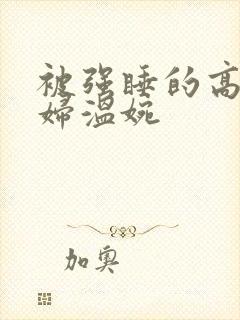 被强睡的高
婦温婉
加奥